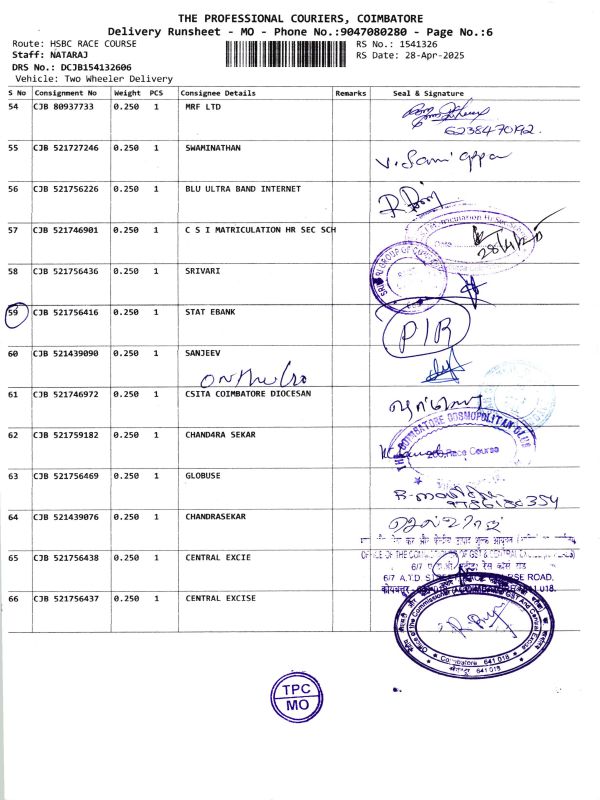 THE PROFESSIONAL COURIERS, COIMBATORE
Delivery Runsheet - MO - Phone No.:9047080280 - Page No.:6
Route: HSBC RACE COURSE
RS No.: 1541326
Staff: NATARAJ
RS Date: 28-Apr-2025
DRS No.: DCJB154132606
Vehicle: Two Wheeler Delivery
S No Consignment No Weight PCS Consignee Details Remarks Seal & Signature
54 CJB 80937733 0.250 1 MRF LTD
6238470192.
55 CJB 521727246 0.250 1 SWAMINATHAN
V. Samiappa
56 CJB 521756226 0.250 1 BLU ULTRA BAND INTERNET
57 CJB 521746901 0.250 1 C S I MATRICULATION HR SEC SCH
Matriculation Hr Sec
Date
28/4/25
58 CJB 521756436 0.250 1 SRIVARI
GROUP OF
59 CJB 521756416 0.250 1 STAT EBANK
P/R
60 CJB 521439090 0.250 1 SANJEEV
61 CJB 521746972 0.250 1 CSITA COIMBATORE DIOCESAN
62 CJB 521759182 0.250 1 CHAND4RA SEKAR
THE COIMBATORE COSMOPOLITAN CLUB
Race Course
63 CJB 521756469 0.250 1 GLOBUSE
64 CJB 521439076 0.250 1 CHANDRASEKAR
65 CJB 521756438 0.250 1 CENTRAL EXCIE
OFFICE OF THE COMMISSIONER OF GST & CENTRAL EXCISE
6/7 A.T.D. STREET, RACE COURSE ROAD,
66 CJB 521756437 0.250 1 CENTRAL EXCISE
Office of the Commissioner of GST And Central Excise
Coimbatore 641 018
TPC
MO